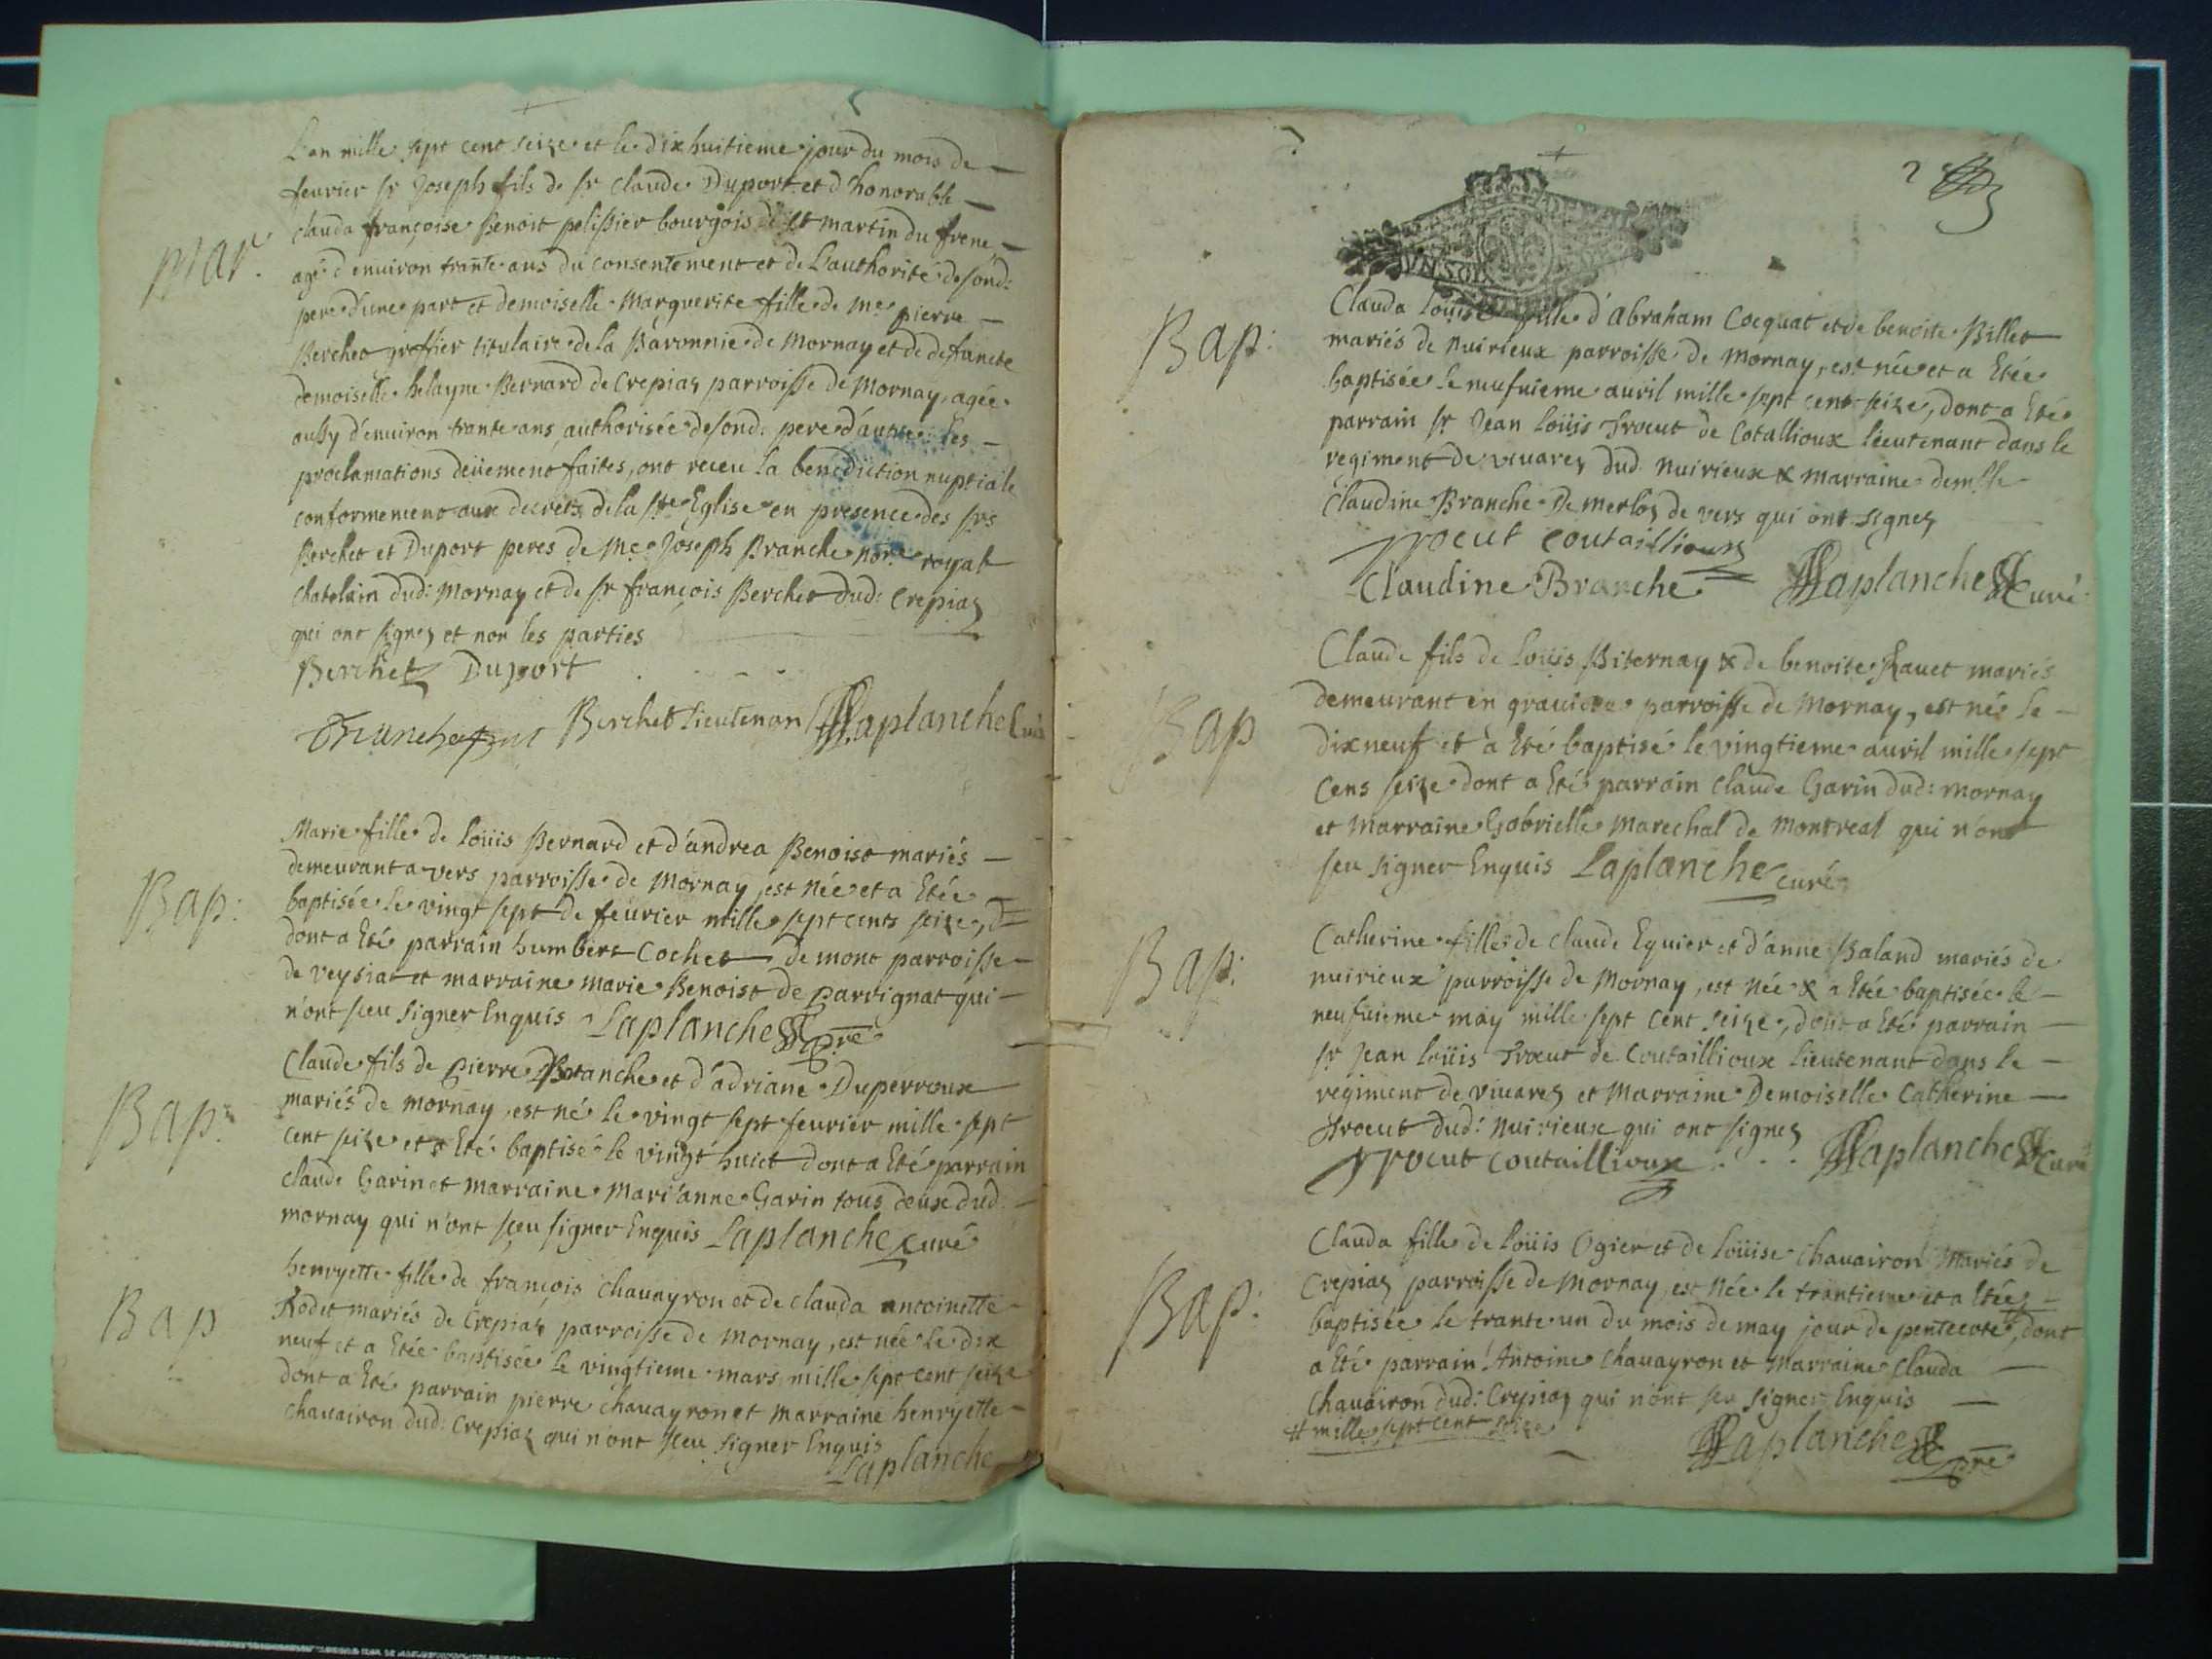 L'an mille sept cent seize et le dixhuitieme jour du mois de
feurier sr Joseph fils de sr claude Duport et d'honorable
clauda françoise Benoit pelissier bourgois de st martin du frene
agé d'enuiron trante ans du consentement et de L'authorité de sond:
pere d'une part et demoiselle Marguerite fille de me pierre
Berchet greffier titulaire de la Baronnie de Mornay et de defuncte
demoiselle helayne Bernard de Crepiaz parroisse de Mornay, agée
aussy d'enuiron trante ans, authorisée de sond: pere d'autre les
proclamations deüement faites, ont receu la benediction nuptiale
conformement aux decrets de la ste Eglise en presence des srs
Berchet et Duport peres de me Joseph Branche nore royal
chatelain dud: Mornay et de sr françois Berchet dud: Crepiaz
qui ont signez et non les parties
Berchet Duport
Berchet Lieutenan Laplanche Curé
mar.
Marie fille de loüis Bernard et d'andrea Benoist mariés
demeurant a vers parroisse de Mornay, est née et a Etée
baptisée le vingt sept de feurier mille sept cents seize,
dont a Eté parrain humbert Cochet de mont parroisse
de veysiat et marraine marie Benoist de Carrignat qui
n'ont sceu signer Enquis Laplanche Curé
Bap:
Claude fils de pierre Branche et d'adriane Duperroux
mariés de mornay, est né le vingt sept feurier mille sept
cent seize et a Eté baptisé le vingt huict dont a Eté parrain
claude Garin et marraine Mari'anne Garin tous deux dud.
mornay qui n'ont sceu signer Enquis Laplanche Curé
Bap:
henryette fille de françois Chauayron et de clauda antoinette
Rodet mariés de Crepiaz parroisse de Mornay, est née le dix
neuf et a Etée baptisée le vingtieme mars mille sept cent seize
dont a Eté parrain pierre chauayron et marraine henryette
chauairon dud: Crepiaz qui n'ont sceu signer Enquis
Laplanche
Bap
2
UN SOL
Clauda loüise fille d'Abraham Cocquat et de benoite Billet
mariés de nuirieux parroisse de Mornay, est née et a Etée
baptisée le neufuieme auril mille sept cent seize, dont a Eté
parrain sr Jean Loüis Trocut de Cotallioux lieutenant dans le
regiment de viuarez dud. Nuirieux & marraine demslle
Claudine Branche de merloz de vers qui ont signez
Trocut coutaillioux
Claudine Branche Laplanche Curé
Bap:
Claude fils de loüis Biternay & de benoite Rauet mariés
demeurant en grauiere parroisse de Mornay, est né le
dixneuf et a Eté baptisé le vingtieme auril mille sept
Cens seize dont a Eté parrain claude Garin dud: mornay
et marraine Gabrielle marechal de montreal qui n'ont
sceu signer Enquis Laplanche curé
Bap
Catherine fille de claude Eguier et d'anne Baland mariés de
nuirieux parroisse de Mornay, est née & a Etée baptisée le
neufuieme may mille sept cent seize, dont a Eté parrain
sr Jean loüis Trocut de Coutaillioux lieutenant dans le
regiment de viuarez et Marraine Demoiselle Catherine
Trocut dud: Nuirieux qui ont signez
Trocut coutaillioux Laplanche Curé
Bap:
Clauda fille de loüis Ogier et de loüise chauairon Mariés de
Crepiaz parroisse de Mornay, est née le trantieme et a Etée
baptisée le trante un du mois de may jour de pentecote #, dont
a Eté parrain Antoine Chauayron et Marraine clauda
Chauairon dud: Crepiaz qui n'ont sceu signer Enquis
# mille sept cent seize
Laplanche Curé
Bap: